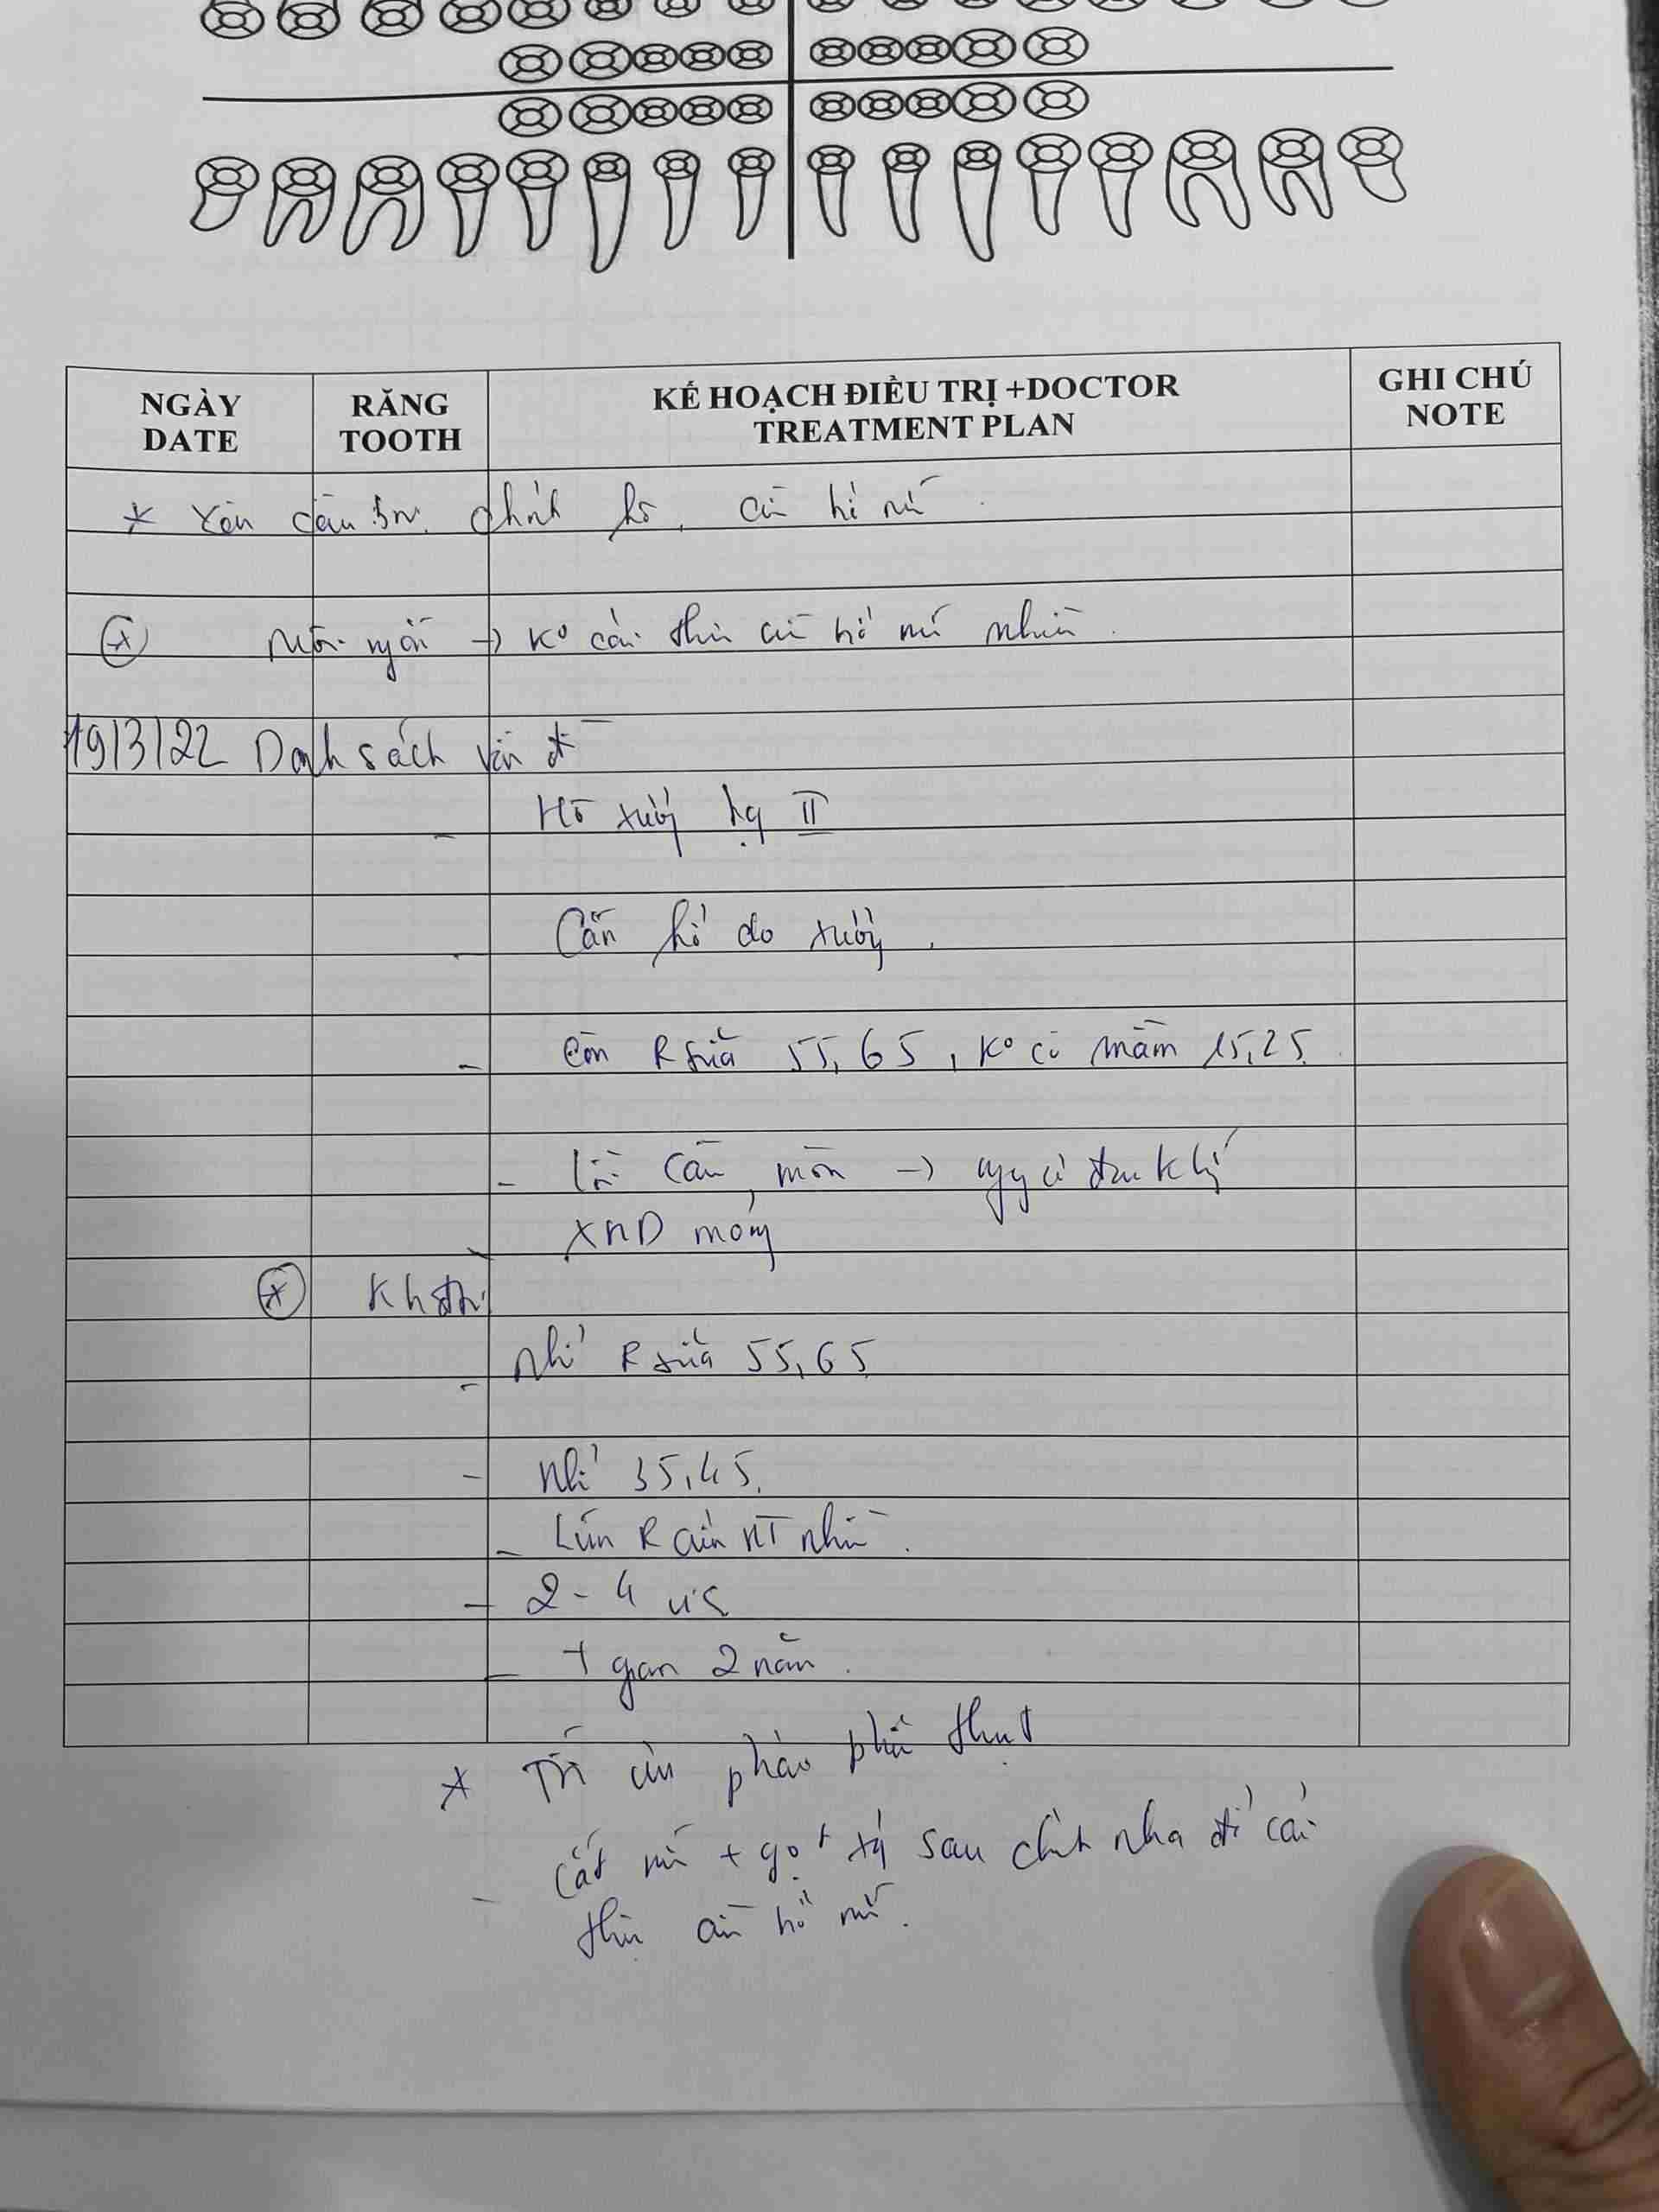 NGÀY
DATE
RĂNG
TOOTH
KẾ HOẠCH ĐIỀU TRỊ +DOCTOR
TREATMENT PLAN
GHI CHÚ
NOTE
* Yêu cầu chỉnh hô, cười hở nướ
Môi ngắn → Ko cải thiện cười hở nướu nhiều.
19/3/22 Danh sách vấn đề
- Hô xương hạng II
- Cắn hở do xương.
- Còn R sữa 55, 65, Ko có mầm 15, 25.
- lồi cầu, mòn →
- XHD móng
Kh đtrị
- Nhổ R sữa 55, 65
- Nhổ 35, 45.
- Lún R cửa HT nhiều.
- 2 - 4 vis
- T gian 2 năm.
* Từ chối phẫu thuật
- Cắt nướu + gọt xg sau chỉnh nha để cải
thiện cười hở nướu.